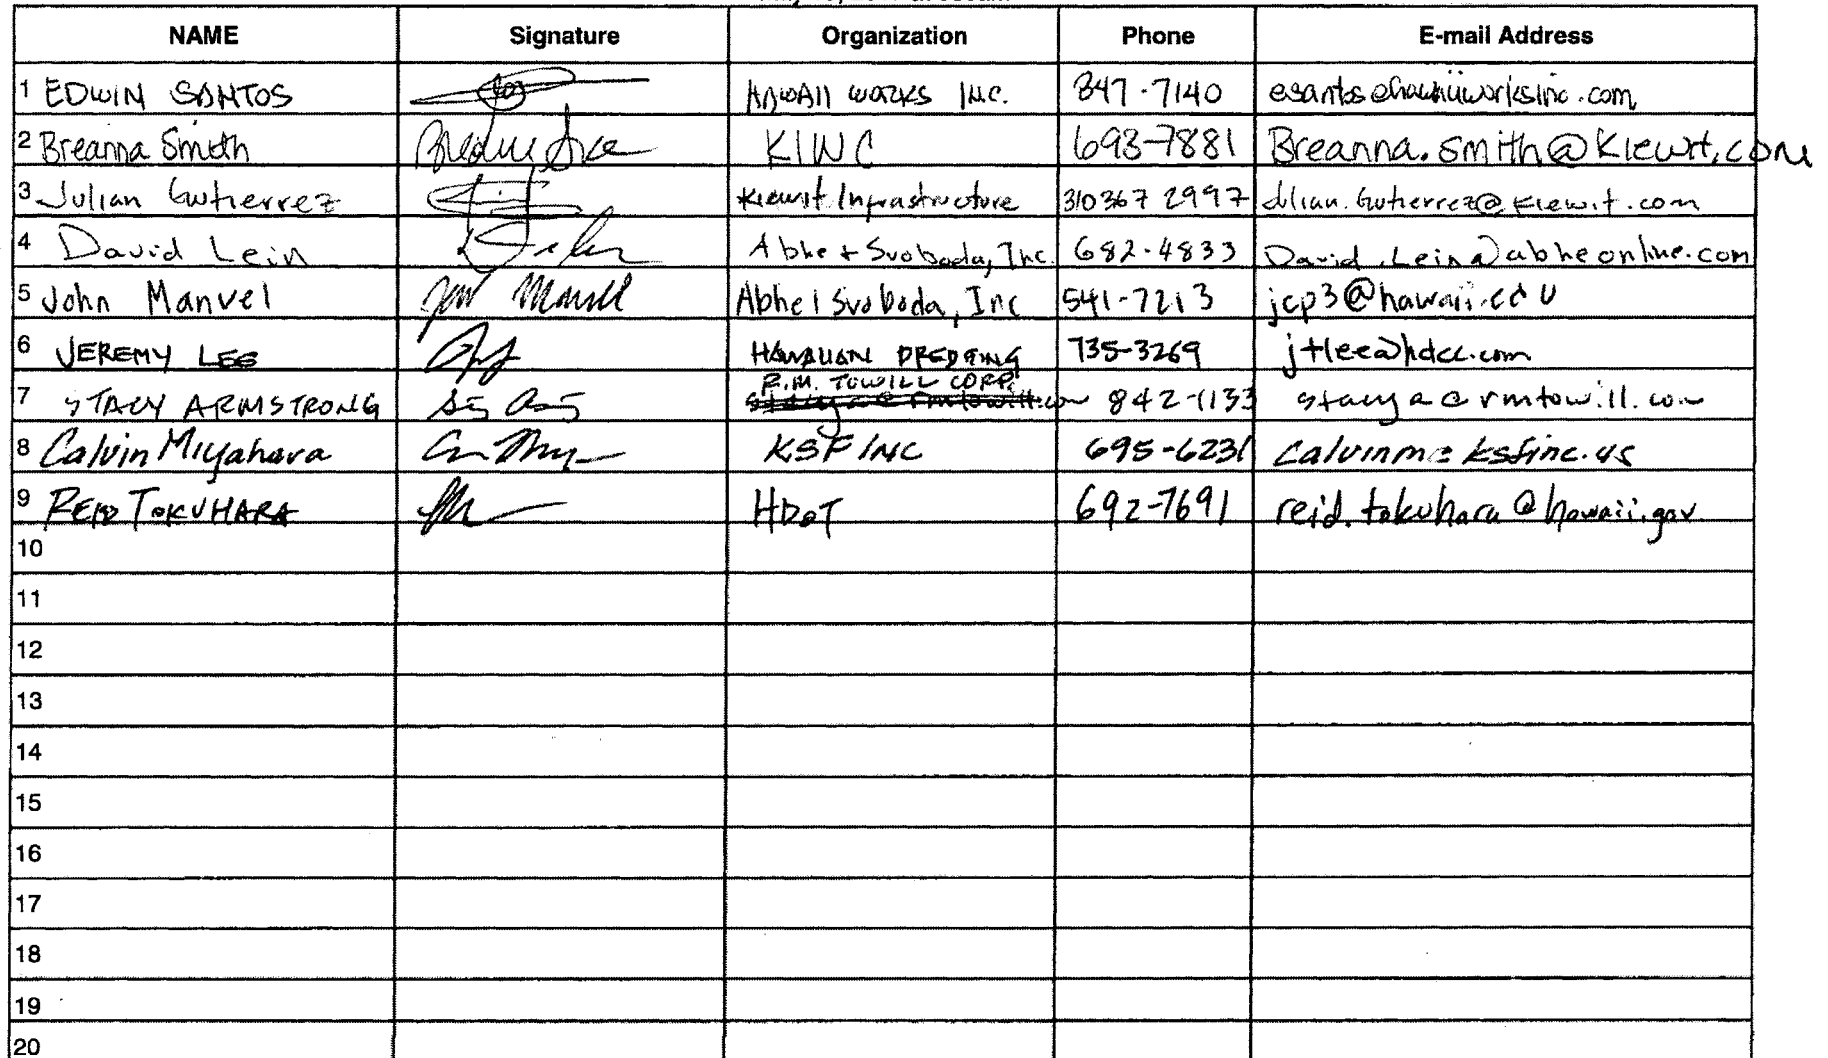 NAME Signature Organization Phone E-mail Address
1 EDWIN SANTOS HAWAII WORKS INC. 847-7140 esantos@hawaiiworksinc.com
2 Breanna Smith KIWC 693-7881 Breanna.smith@kiewit.com
3 Julian Gutierrez Kiewit Infrastructure 310 367 2997 Julian.Gutierrez@kiewit.com
4 David Lein Abhe + Svoboda, Inc. 682-4833 David.Lein@abheonline.com
5 John Manuel Abhe & Svoboda, Inc 541-7213 jcp3@hawaii.edu
6 JEREMY LEE HAWAIIAN DREDGING 735-3269 jtlee@hdcc.com
R.M. TOWILL CORP.
7 STACY ARMSTRONG stacya@rmtowill.com 842-1133 stacya@rmtowill.com
8 Calvin Miyahara KSF INC 695-6231 calvinm@ksfinc.us
9 REID TOKUHARA HDOT 692-7691 reid.tokuhara@hawaii.gov
10
11
12
13
14
15
16
17
18
19
20